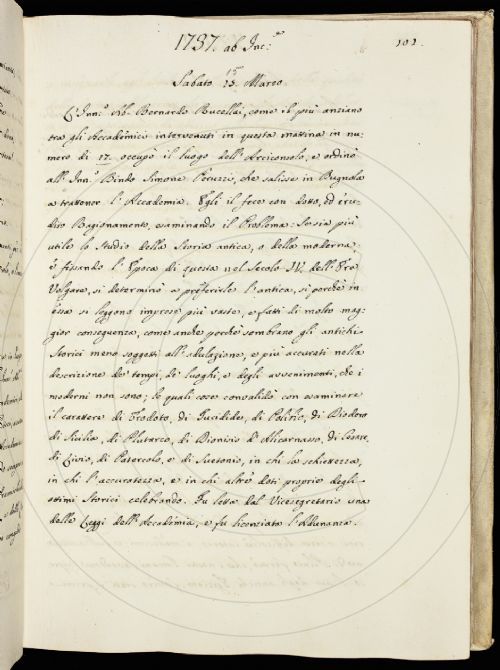 1737. ab Inc.ne
101.
Sabato 15 Marzo
L'Inn.o Ab. Bernardo Bucellai, come il più anziano
tra gli Accademici intervenuti in questa mattina in nu-
mero di 17. occupò il luogo dell'Arciconsolo, e ordinò
all'Inn.o Bindo Simone Peruzzi, che salisse in Bugnola
a trattener l'Accademia. Egli il fece con dotto, ed eru-
dito Ragionamento, esaminando il Problema: Se sia più
utile lo Studio della Storia antica, o della moderna:
e fissando l'Epoca di questa nel Secolo IV. dell'Era
Volgare, si determinò a preferirle l'antica, sì perchè in
essa si leggono imprese più vaste, e fatti di molto mag-
gior conseguenza, come anche perchè sembrano gli antichi
Storici meno soggetti all'adulazione, e più accurati nella
descrizione de' tempi, de' luoghi, e degli avvenimenti, che i
moderni non sono; le quali cose convalidò con esaminare
il carattere di Erodoto, di Tucidide, di Polibio, di Diodoro
di Sicilia, di Plutarco, di Dionisio d'Alicarnasso, di Cesare,
di Livio, di Patercolo, e di Suetonio, in chi la schiettezza,
in chi l'accuratezza, e in chi altre doti proprie degli
ottimi Storici celebrando. Fu letta dal Vicesegretario una
delle Leggi dell'Accademia, e fu licenziata l'Adunanza.